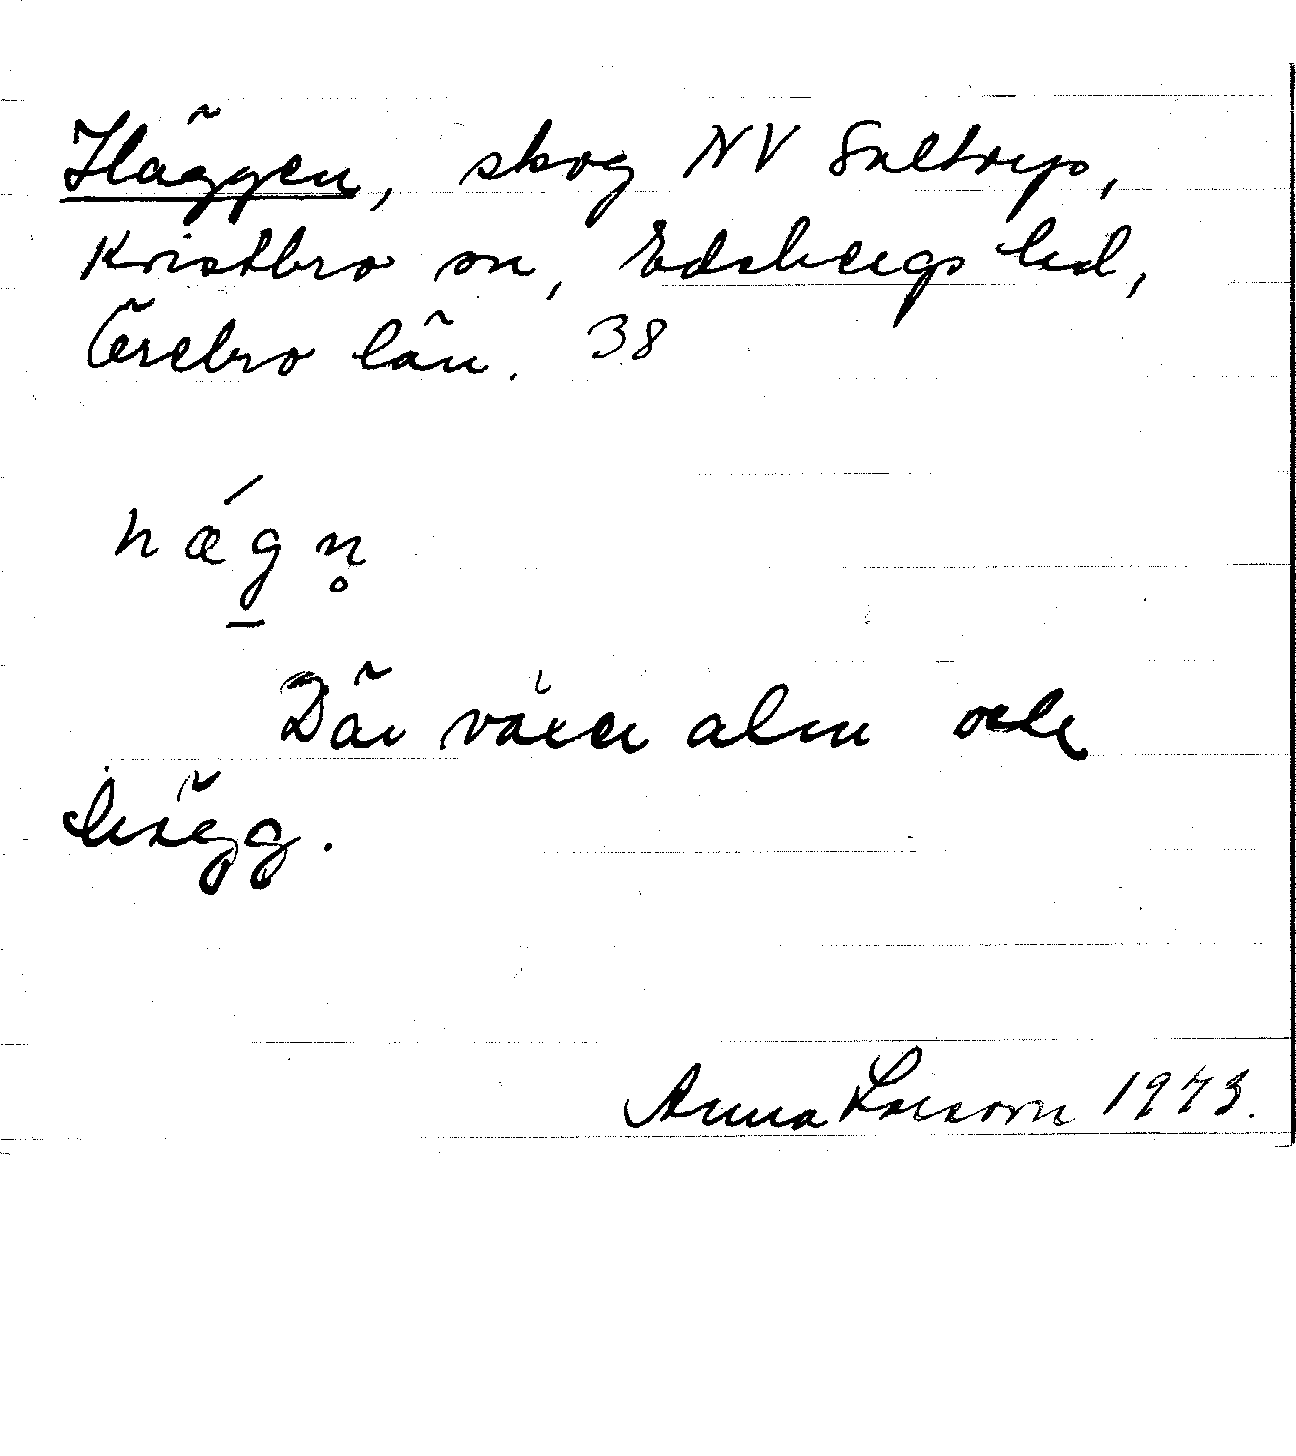 Häggen, skog NV Saltorp,
Kvistbro sn, Edsbergs hd,
Örebro län. 38
hǽg̲n̥
Där växer alm och
hägg.
Anna Larsson 1973.